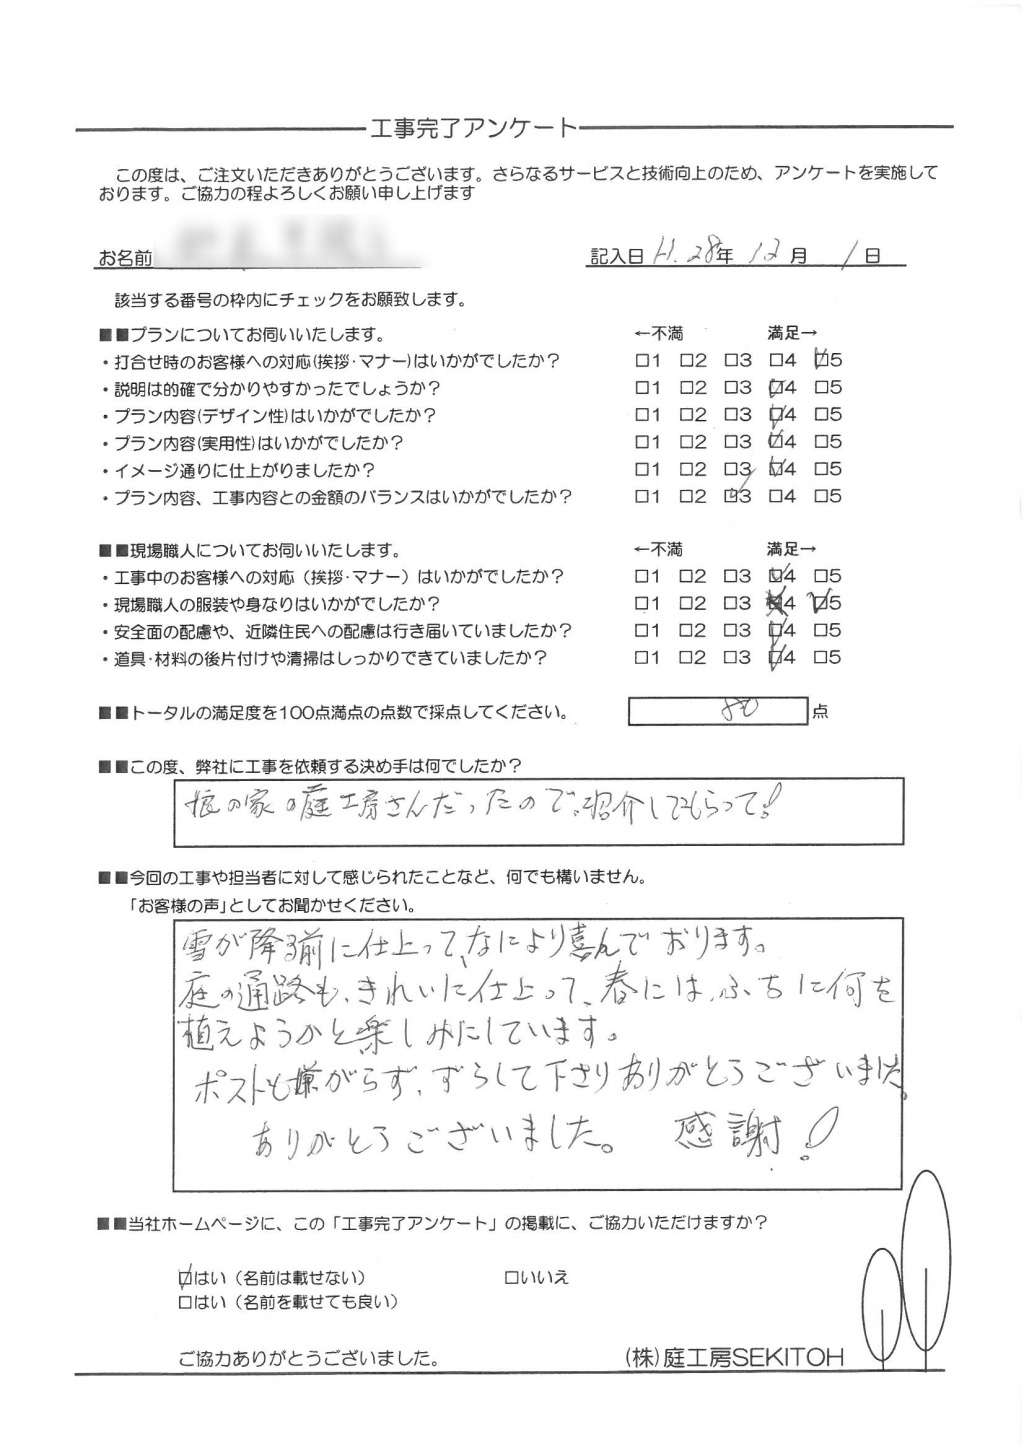 工事完了アンケート
この度は、ご注文いただきありがとうございます。さらなるサービスと技術向上のため、アンケートを実施して
おります。ご協力の程よろしくお願い申し上げます
お名前 記入日 H.28年 12月 1日
該当する番号の枠内にチェックをお願致します。
■■プランについてお伺いいたします。 ←不満 満足→
・打合せ時のお客様への対応(挨拶・マナー)はいかがでしたか? □1 □2 □3 □4 ☑5
・説明は的確で分かりやすかったでしょうか? □1 □2 □3 ☑4 □5
・プラン内容(デザイン性)はいかがでしたか? □1 □2 □3 ☑4 □5
・プラン内容(実用性)はいかがでしたか? □1 □2 □3 ☑4 □5
・イメージ通りに仕上がりましたか? □1 □2 □3 ☑4 □5
・プラン内容、工事内容との金額のバランスはいかがでしたか? □1 □2 ☑3 □4 □5
■■現場職人についてお伺いいたします。 ←不満 満足→
・工事中のお客様への対応（挨拶・マナー）はいかがでしたか? □1 □2 □3 ☑4 □5
・現場職人の服装や身なりはいかがでしたか? □1 □2 □3 □4 ☑5
・安全面の配慮や、近隣住民への配慮は行き届いていましたか? □1 □2 □3 ☑4 □5
・道具・材料の後片付けや清掃はしっかりできていましたか? □1 □2 □3 ☑4 □5
■■トータルの満足度を100点満点の点数で採点してください。 80 点
■■この度、弊社に工事を依頼する決め手は何でしたか?
娘の家の庭工房さんだったので、紹介してもらって!
■■今回の工事や担当者に対して感じられたことなど、何でも構いません。
「お客様の声」としてお聞かせください。
雪が降る前に仕上って、なにより喜んでおります。
庭の通路も、きれいに仕上って、春には、ふちに何を
植えようかと楽しみにしています。
ポストも嫌がらず、ずらして下さりありがとうございました。
ありがとうございました。 感謝!
■■当社ホームページに、この「工事完了アンケート」の掲載に、ご協力いただけますか?
☑はい（名前は載せない） □いいえ
□はい（名前を載せても良い）
ご協力ありがとうございました。 (株)庭工房SEKITOH